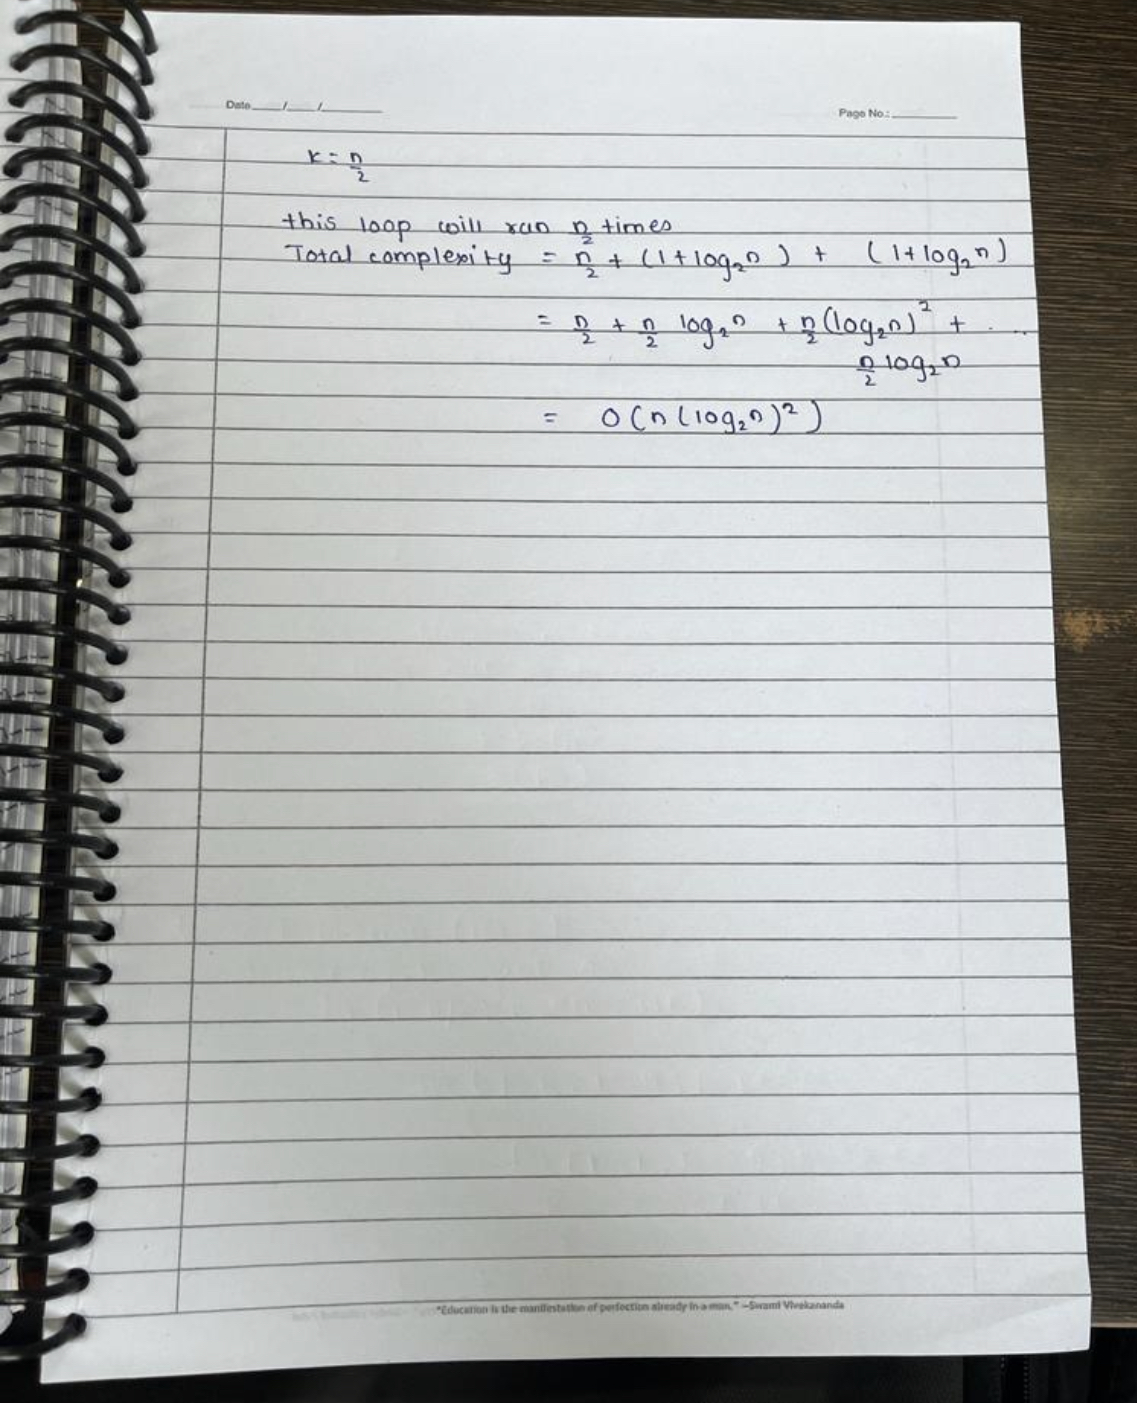 Date ___/___/______
Page No.: ______
K = n/2
this loop will run n/2 times
Total complexity = n/2 + (1+log₂n) + (1+log₂n)
= n/2 + n/2 log₂n + n/2 (log₂n)² + ....
n/2 log₂n
= O(n(log₂n)²)
"Education is the manifestation of perfection already in a man." –Swami Vivekananda